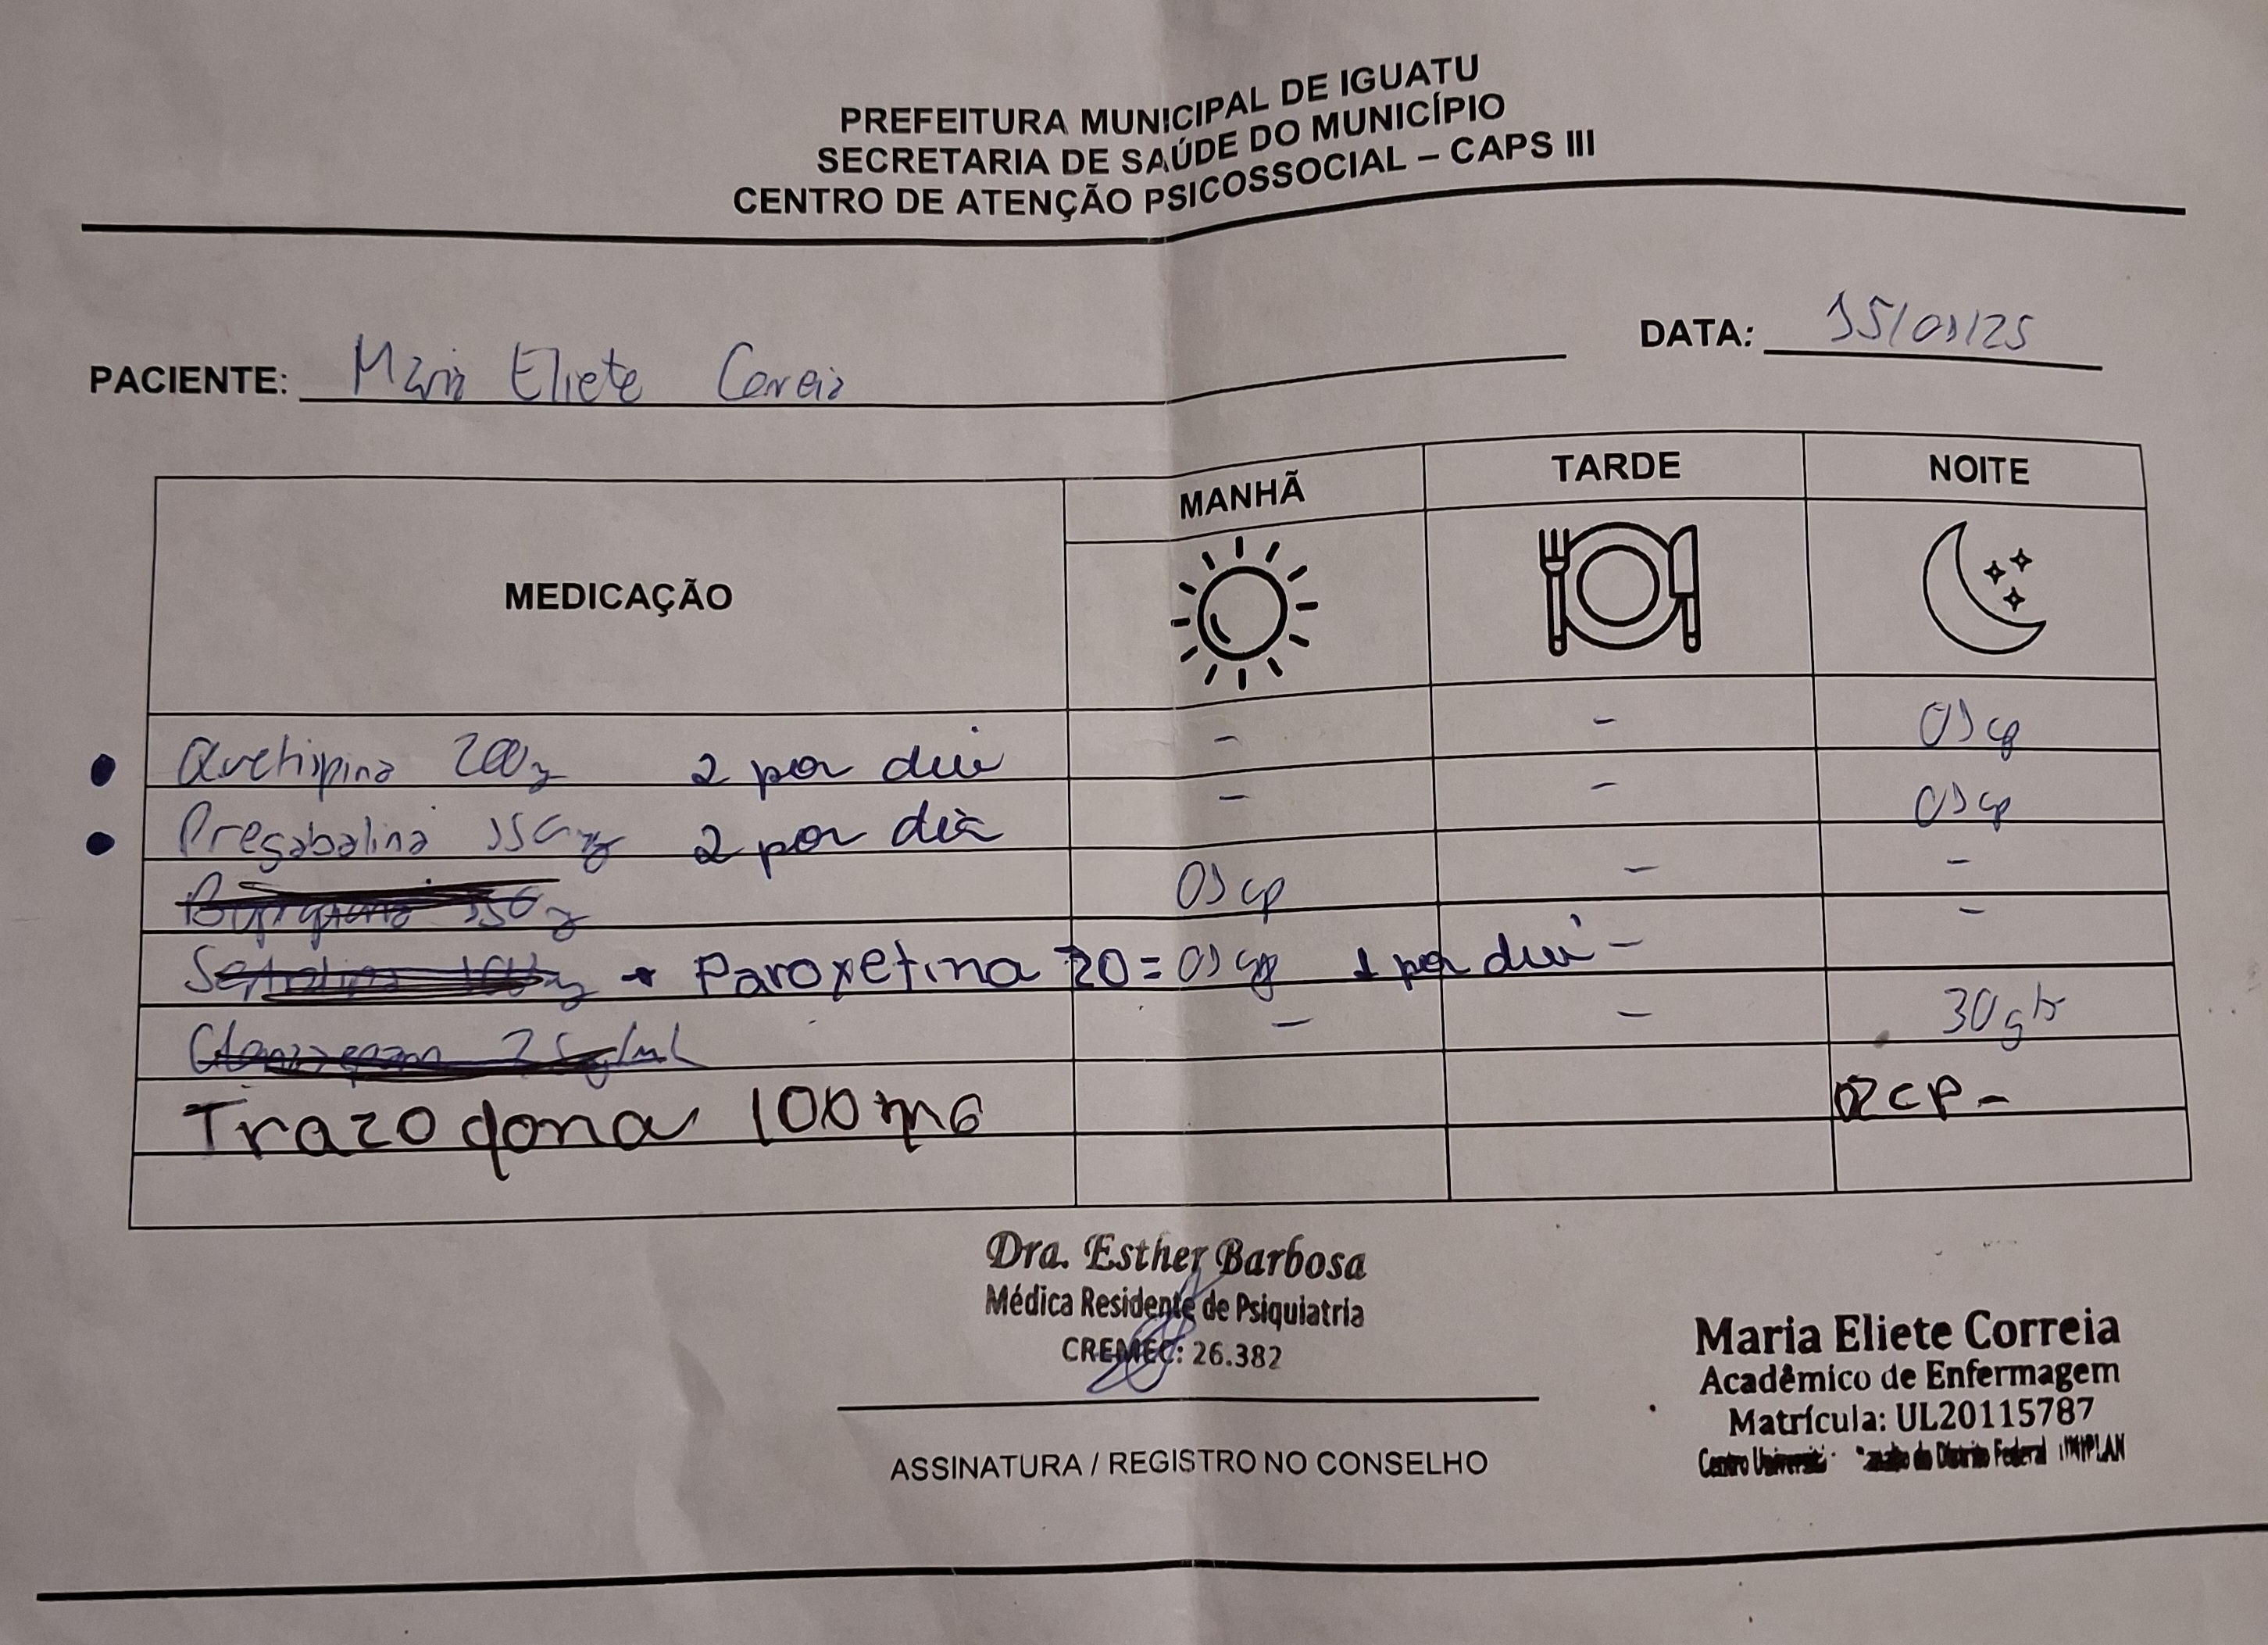 PREFEITURA MUNICIPAL DE IGUATU
SECRETARIA DE SAÚDE DO MUNICÍPIO
CENTRO DE ATENÇÃO PSICOSSOCIAL – CAPS III
PACIENTE: Maria Eliete Correia DATA: 15/01/25
MEDICAÇÃO MANHÃ TARDE NOITE
• Quetiapina 200mg 2 por dia - - 01 cp
• Pregabalina 150mg 2 por dia - - 01 cp
150mg 01 cp - -
Sertralina 100mg Paroxetina 20 = 01 cp 1 por dia - -
Clonazepam 2,5mg/ml - - 30 gts
Trazodona 100 mg 02 CP -
Dra. Esther Barbosa
Médica Residente de Psiquiatria
CREMEC: 26.382
ASSINATURA / REGISTRO NO CONSELHO
Maria Eliete Correia
Acadêmico de Enfermagem
Matrícula: UL20115787
Centro do Distrito Federal